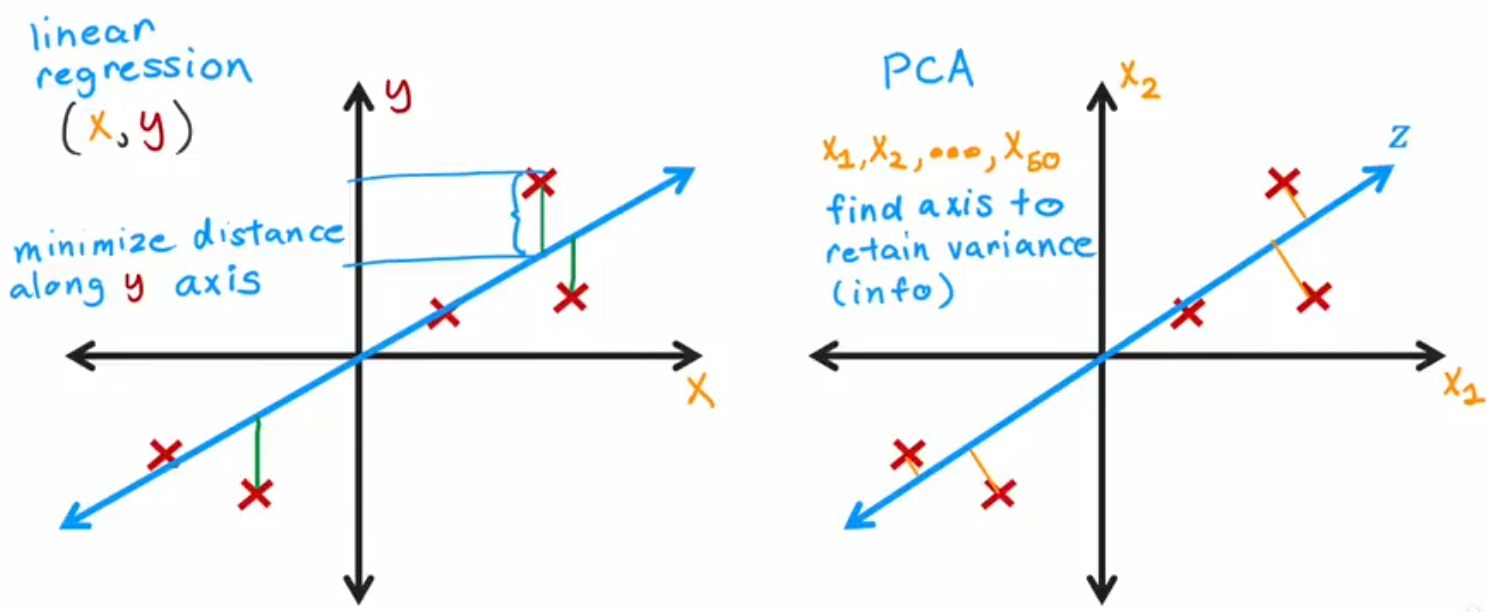 linear
regression
(x, y)
y
minimize distance
along y axis
x
PCA
x₁, x₂, •••, x₅₀
find axis to
retain variance
(info)
x₂
z
x₁